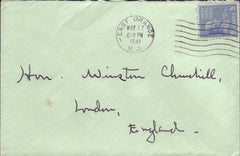 EAST ORANGE
MAY 17
1941
N.J.
Hon. Winston Churchill,
London,
England.